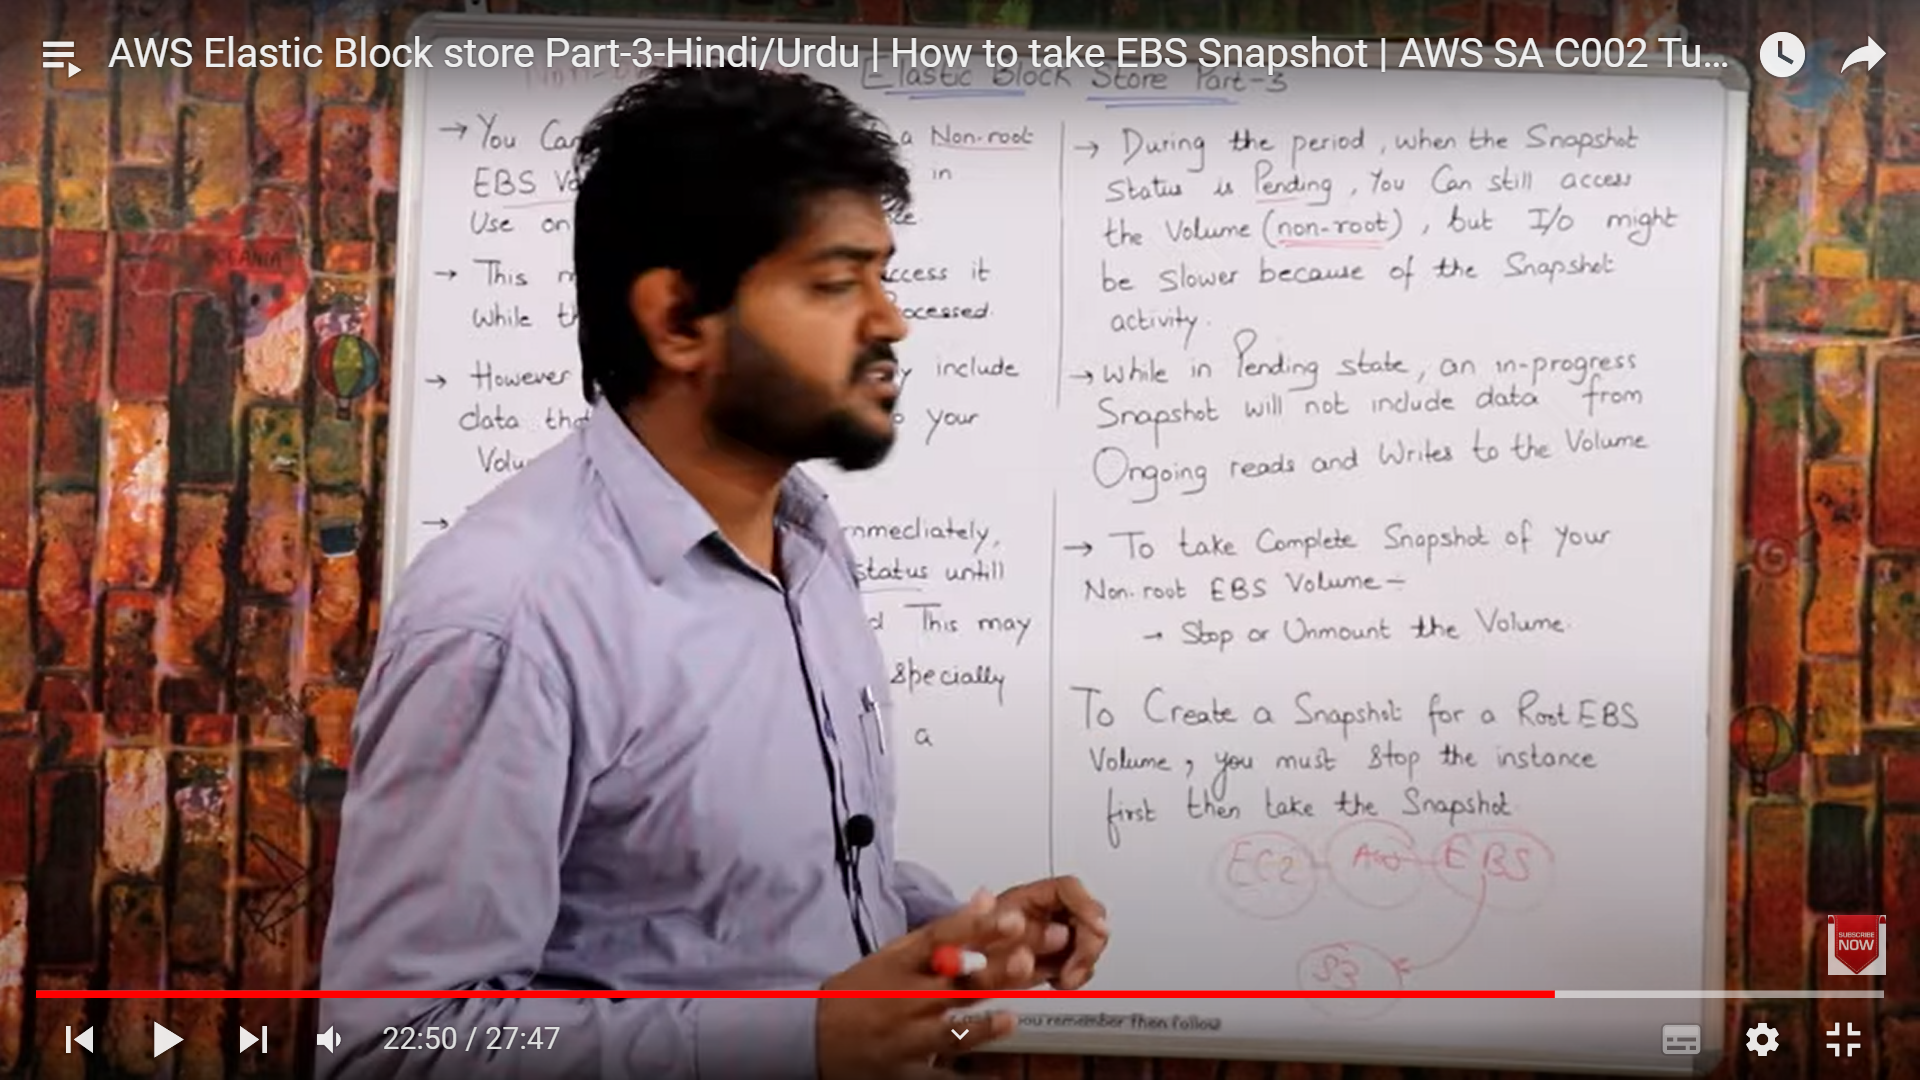 AWS Elastic Block store Part-3-Hindi/Urdu | How to take EBS Snapshot | AWS SA C002 Tu...
Elastic Block Store Part-3
→ You Can
a Non-root
EBS
in
Use on
→ This
it
While
→ However
include
data
your
→
immediately,
status untill
This may
specially
a
→ During the period, when the Snapshot
Status is Pending, You Can still access
the Volume (non-root), but I/o might
be slower because of the Snapshot
activity.
→ while in Pending state, an in-progress
Snapshot will not include data from
Ongoing reads and Writes to the Volume
→ To take Complete Snapshot of your
Non-root EBS Volume -
→ Stop or Unmount the Volume.
To Create a Snapshot for a Root EBS
Volume, you must stop the instance
first then take the Snapshot.
EC2
EBS
S3
you remember then follow
SUBSCRIBE
NOW
22:50 / 27:47